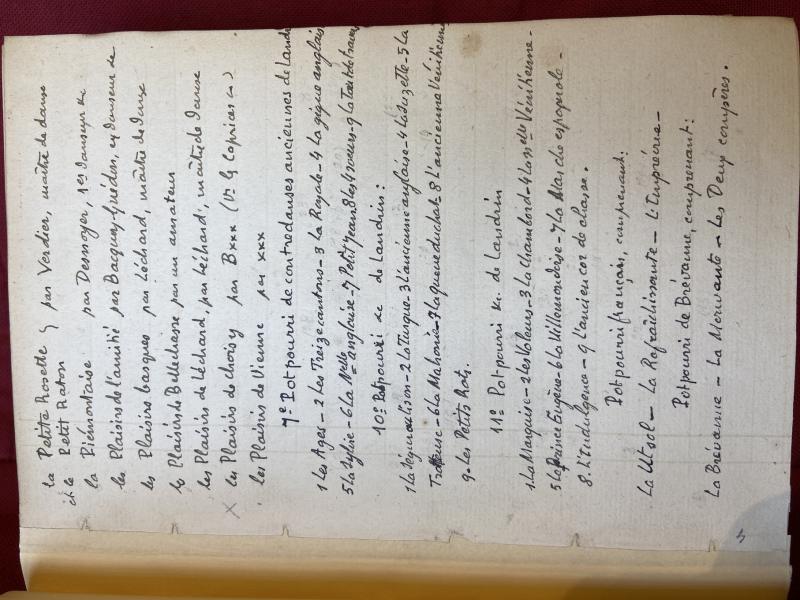 la Petite Rosette } par Verdier, maître de danse
et le Petit Raton
la Piémontaise par Desnoyer, 1er danseur &c
les Plaisirs de l'amitié par Bacquoy-Guédon, ex danseur de
les Plaisirs basques par Léchard, maître de danse
les Plaisirs de Bellechasse par un amateur
les Plaisirs de Léchard, par Léchard, maître de danse
X les Plaisirs de choisy par B*** (Vr les Caprices &c)
les Plaisirs de Vienne par ***
7e Potpourri de contredanses anciennes de Landr
1 Les Ages - 2 Les Treize cantons - 3 La Royale - 4 La gigue anglais
5 La Sylvie - 6 La Nelle anglaise - 7 Petit Jean
10e Potpourri &c de Landrin:
2 La Turque - 3 l'ancienne anglaise - 4 La Suzette - 5 La
- 6 La Mahonie - 7 la queue du chat - 8 l'ancienne Vénitienne
9 - Les Petits Rats.
11e Potpourri &c. de Landrin
1 La Marquise - 2 Les Voleurs - 3 La Chambord - 4 La Nelle Vénitienne -
5 Le Prince Eugène - 6 La Villemomboise - 7 La Marche espagnole -
8. L'Indulgence - 9 L'ancien cor de chasse.
Potpourri français, comprenant:
La Utsol - La Rafraîchissante - L'Empirème -
Potpourri de Brévanne, comprenant:
La Brévanne - La Mervante - Les Deux compères.
5